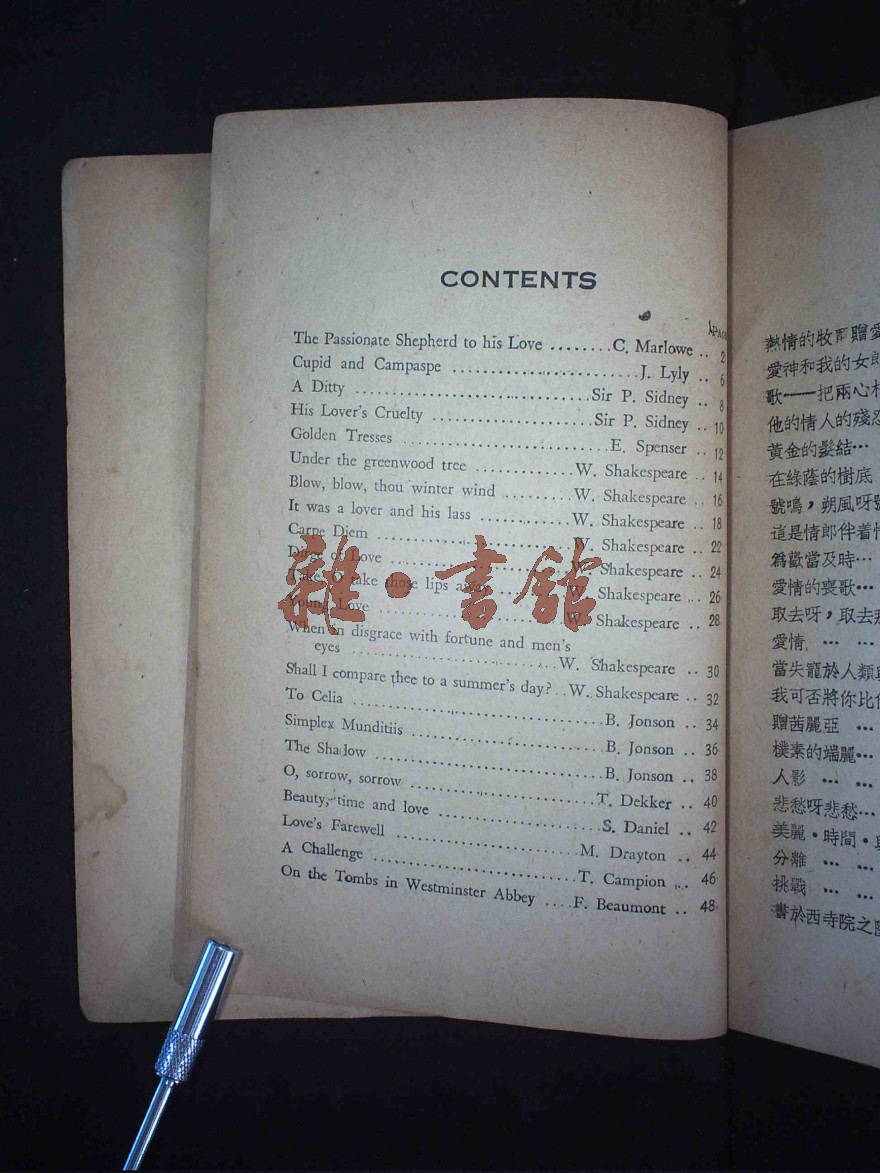 CONTENTS
PAGE
The Passionate Shepherd to his Love ........C. Marlowe .. 2
Cupid and Campaspe ........................J. Lyly .. 6
A Ditty ..............................Sir P. Sidney .. 8
His Lover's Cruelty .....................Sir P. Sidney .. 10
Golden Tresses ...........................E. Spenser .. 12
Under the greenwood tree ............W. Shakespeare .. 14
Blow, blow, thou winter wind .........W. Shakespeare .. 16
It was a lover and his lass ...........W. Shakespeare .. 18
Carpe Diem ........................W. Shakespeare .. 22
Dirge of Love ......................W. Shakespeare .. 24
Take, O take those lips away .........W. Shakespeare .. 26
Young Love ........................W. Shakespeare .. 28
When in disgrace with fortune and men's
eyes ..........................W. Shakespeare .. 30
Shall I compare thee to a summer's day? ..W. Shakespeare .. 32
To Celia ..............................B. Jonson .. 34
Simplex Munditiis ......................B. Jonson .. 36
The Shadow ...........................B. Jonson .. 38
O, sorrow, sorrow ......................T. Dekker .. 40
Beauty, time and love ...................S. Daniel .. 42
Love's Farewell .......................M. Drayton .. 44
A Challenge ..........................T. Campion .. 46
On the Tombs in Westminster Abbey ....F. Beaumont .. 48
雜·書館
熱情的牧 贈愛
愛神和我的女郎
歌——把兩心
他的情人的殘忍
黃金的髮結…
在綠蔭的樹底
號鳴，朔風呀
這是情郎伴着
為歡當及時…
愛情的喪歌…
取去呀，取去
愛情， … …
當失寵於人類
我可否將你比
贈茜麗亞 …
樸素的端麗…
人影 … …
悲愁呀悲愁…
美麗·時間·
分離 … …
挑戰 … …
書於西寺院之